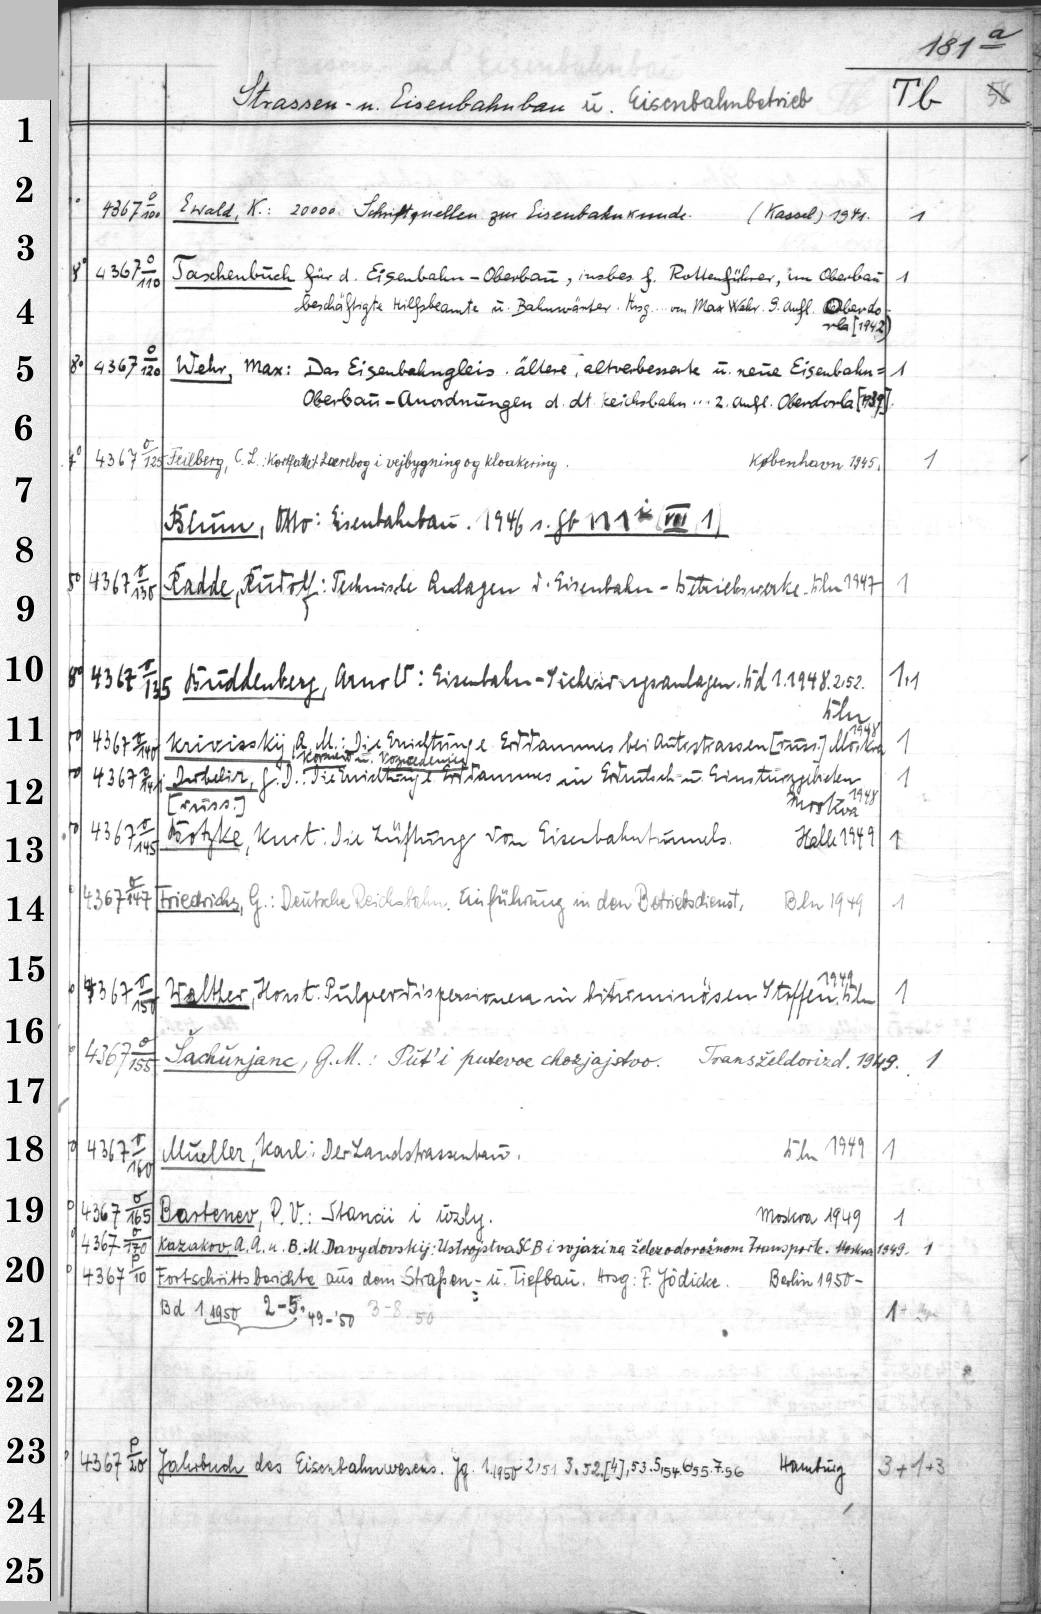 181 a
Strassen- u. Eisenbahnbau u. Eisenbahnbetrieb Tb
1
2
4367 o/100 Ewald, K.: 20000 Schriftquellen zur Eisenbahnkunde. (Kassel) 1941. 1
3
8° 4367 o/110 Taschenbuch für d. Eisenbahn-Oberbau, insbes. f. Rottenführer, im Oberbau 1
4
beschäftigte Hilfsbeamte u. Bahnwärter. Hrsg. von Max Wehr. 9. Aufl. Oberdo-
rla [1942]
5
8° 4367 o/120 Wehr, Max: Das Eisenbahngleis. ältere, altverbesserte u. neue Eisenbahn= 1
Oberbau-Anordnungen d. dt. Reichsbahn ... 2. Aufl. Oberdorla [1939].
6
4367 o/125 Feilberg, C. L.: Kortfattet Lærebog i vejbygning og kloakering. København 1945. 1
7
Blum, Otto: Eisenbahnbau. 1946 s.
8
5° 4367 o/130 Radde, Rudolf: Technische Anlagen d. Eisenbahn-Betriebswerke. Bln 1947 1
9
10
8° 4367 o/135 Buddenberg, Arnold: Eisenbahn-Sicherungsanlagen. Bd 1.1948.2,52. 1,1
Bln
11
4367 o/140 Krivisskij, A. M.: Die Errichtung e. Erddammes bei Autostrassen [russ.] Moskva 1948 1
12
4367 o/141 G. D.: Die Errichtung e. Erddammes in 1
[russ.] Moskva 1948
13
5° 4367 o/145 Botzke, Kurt: Die Lüftung von Eisenbahntunnels. Halle 1949 1
14
4367 o/147 Friedrichs, G.: Deutsche Reichsbahn. Einführung in den Betriebsdienst, Bln 1949 1
15
4367 o/150 Walther, Horst: Pulverdispersionen in bituminösen Stoffen. Bln 1949 1
16
4367 o/155 Šachunjanc, G. M.: Put' i putevoe chozjajstvo. Transželdorizd. 1949. 1
17
18
4367 o/160 Mueller, Karl: Der Landstrassenbau. Bln 1949 1
19
4367 o/165 Bartenev, P. V.: Stancii i uzly. Moskva 1949 1
4367 o/170 Kazakov, A. A. u. B. M. Davydovskij: Ustrojstva SCB i svjazi na železnodorožnom Transporte. Moskva 1949. 1
20
4367 p/10 Fortschrittsberichte aus dem Straßen- u. Tiefbau. Hrsg: F. Jödicke. Berlin 1950-
Bd 1 1950 2-5. 49-'50 3-8. 50 1+
21
22
23
4367 p/20 Jahrbuch des Eisenbahnwesens. Jg. 1.1950 2,51 3.52.[4],53.5,54.6,55.7.56 Hamburg 3+1+3
24
25